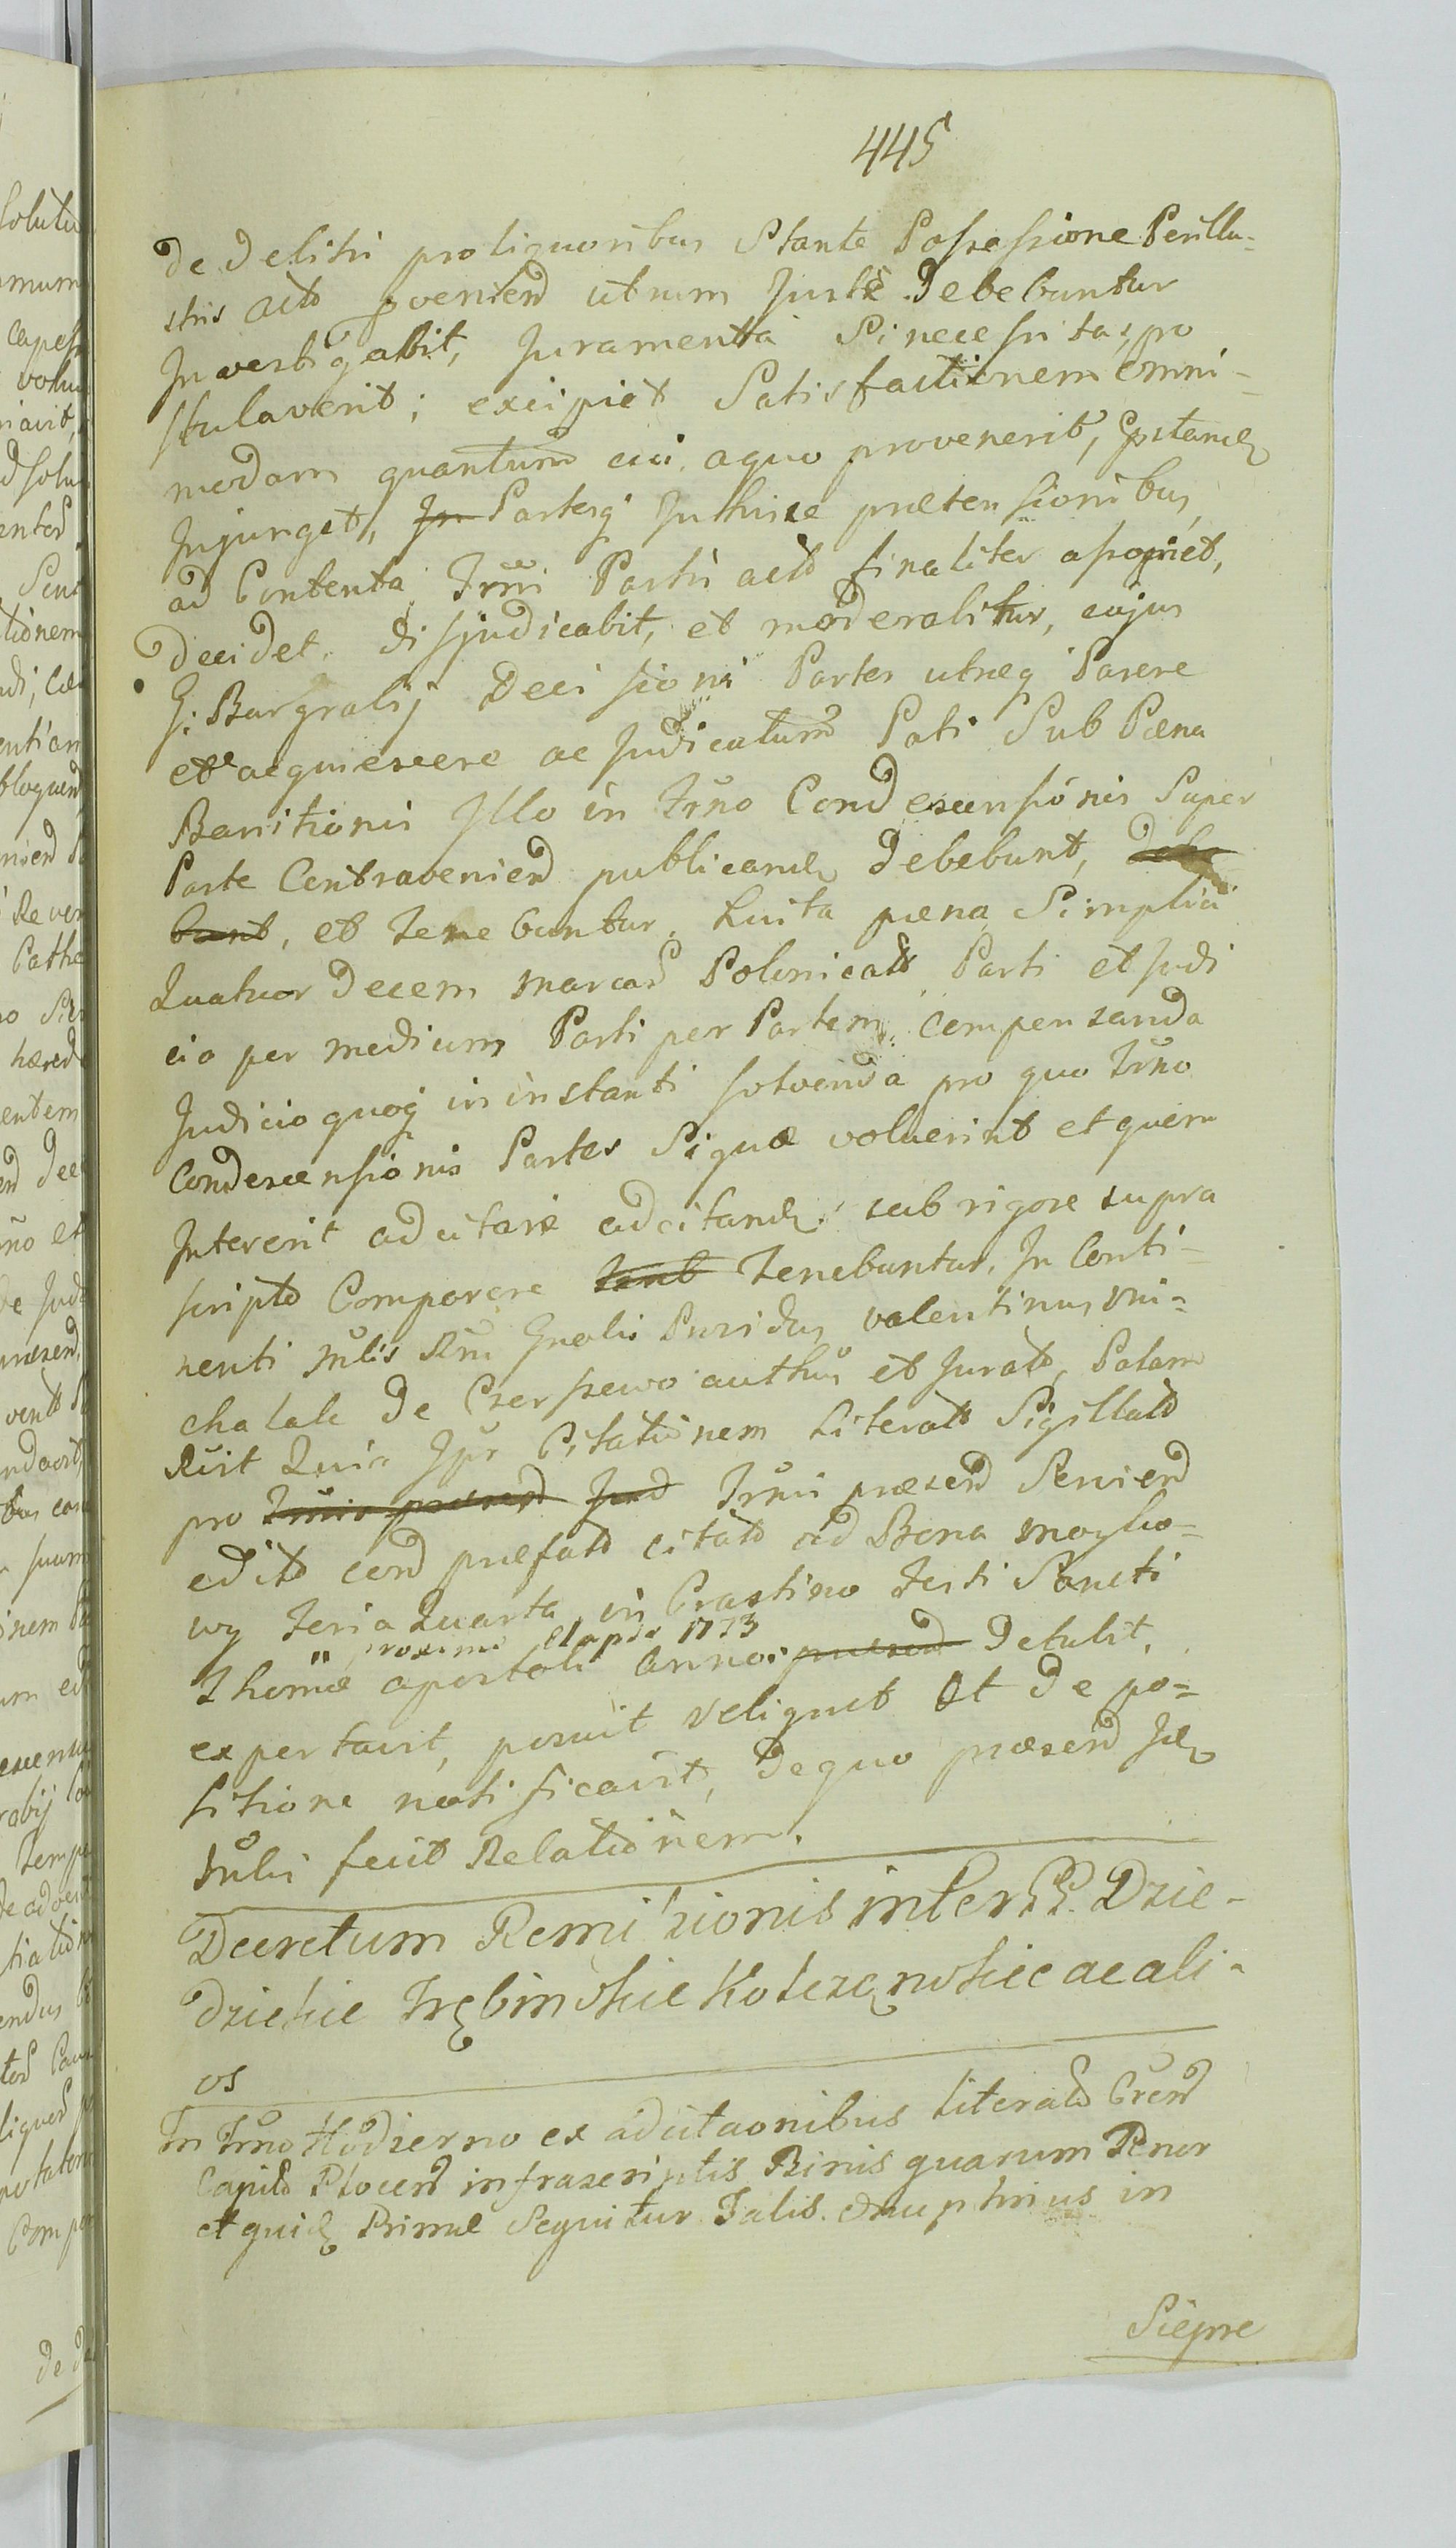 445
de Delitii pro liquoribus Stante Possessione Perillu-
stris actd pveniend utrum Juste Debebuntur
Investigabit, Juramenta Si necessitas po
stulaverit; excipiet Satisfactionem omni-
modam quantum cui aquo provenerit, Pstand
Injunget, In Partesq Inhisce prætensionibus
ad Contenta Trmi Partis actd finaliter asopiet,
Decidet. disjudicabit, et moderabitur, cujus
G: Burgrabij Decisioni Partes utræq Parere
et acquiescere ac Judicatum Pati Sub Pæna
Banitionis Illo in Trmo Condescensionis Super
Parte Contraveniend publicand Debebunt, Debe
bunt, et Tenebuntur. Luita pæna Simplici
Quatuor Decem marcas Polonicals Parti et Judi
cio per medium Parti per Partem Compensanda
Judicio quoq in instanti solvenda pro quo Trmo
Condescensionis Partes Siquæ voluerint et quem
Intererit adcitare adcitand sub rigore supra
scripto Comparere Tenb Tenebuntur, In Conti-
nenti Mlis Rni Gnalis Providus valentinus Mi-
chalak de Czerpsewo authus et Juratd, Palam
Rūit Quia Ipse Citationem Literatd Sigillatd
pro Trmis præsend Jud Trmi præsend Serviend
editd cord præfatd citatd ad Bona moglio-
wy Feria Quarta in Crastino Festi Sancti
" proxime Elapso 1773
Thomæ apostoli Anno præsend Detulit,
exportavit, posuit reliquit Et de po-
sitione notificavit, Dequo præsend Jud
Mlis fecit Relationem.
Decretum Remissionis inter PP. Dzie-
dzickie Trębinskie Kolczęnskie ac ali-
os
In Trmo Hodierno ex adcitaonibus Literatd Crend
Capitd Plocend infrascriptis Binis quarum Tenor
et quid Primæ Sequitur Talis. Onuphrius in
Siepre